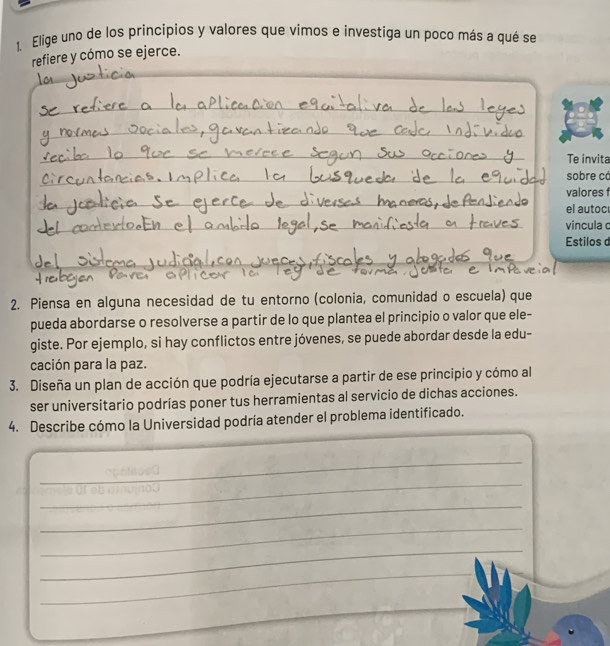 1. Elige uno de los principios y valores que vimos e investiga un poco más a qué se
refiere y cómo se ejerce.
la justicia
se refiere a la aplicacion equitativa de las leyes
y normas sociales, garantizando que cada individuo
reciba lo que se merece segun sus acciones y
circuntancias. Implica la busqueda de la equidad
la justicia se ejerce de diversas maneras, dependiendo
del contexto. En el ambito legal, se manifiesta a traves
del sistema judicial, con jueces, fiscales y abogados que
trabajan para aplicar la ley de forma justa e imparcial
Te invita
sobre có
valores f
el autocu
vincula c
Estilos d
2. Piensa en alguna necesidad de tu entorno (colonia, comunidad o escuela) que
pueda abordarse o resolverse a partir de lo que plantea el principio o valor que ele-
giste. Por ejemplo, si hay conflictos entre jóvenes, se puede abordar desde la edu-
cación para la paz.
3. Diseña un plan de acción que podría ejecutarse a partir de ese principio y cómo al
ser universitario podrías poner tus herramientas al servicio de dichas acciones.
4. Describe cómo la Universidad podría atender el problema identificado.